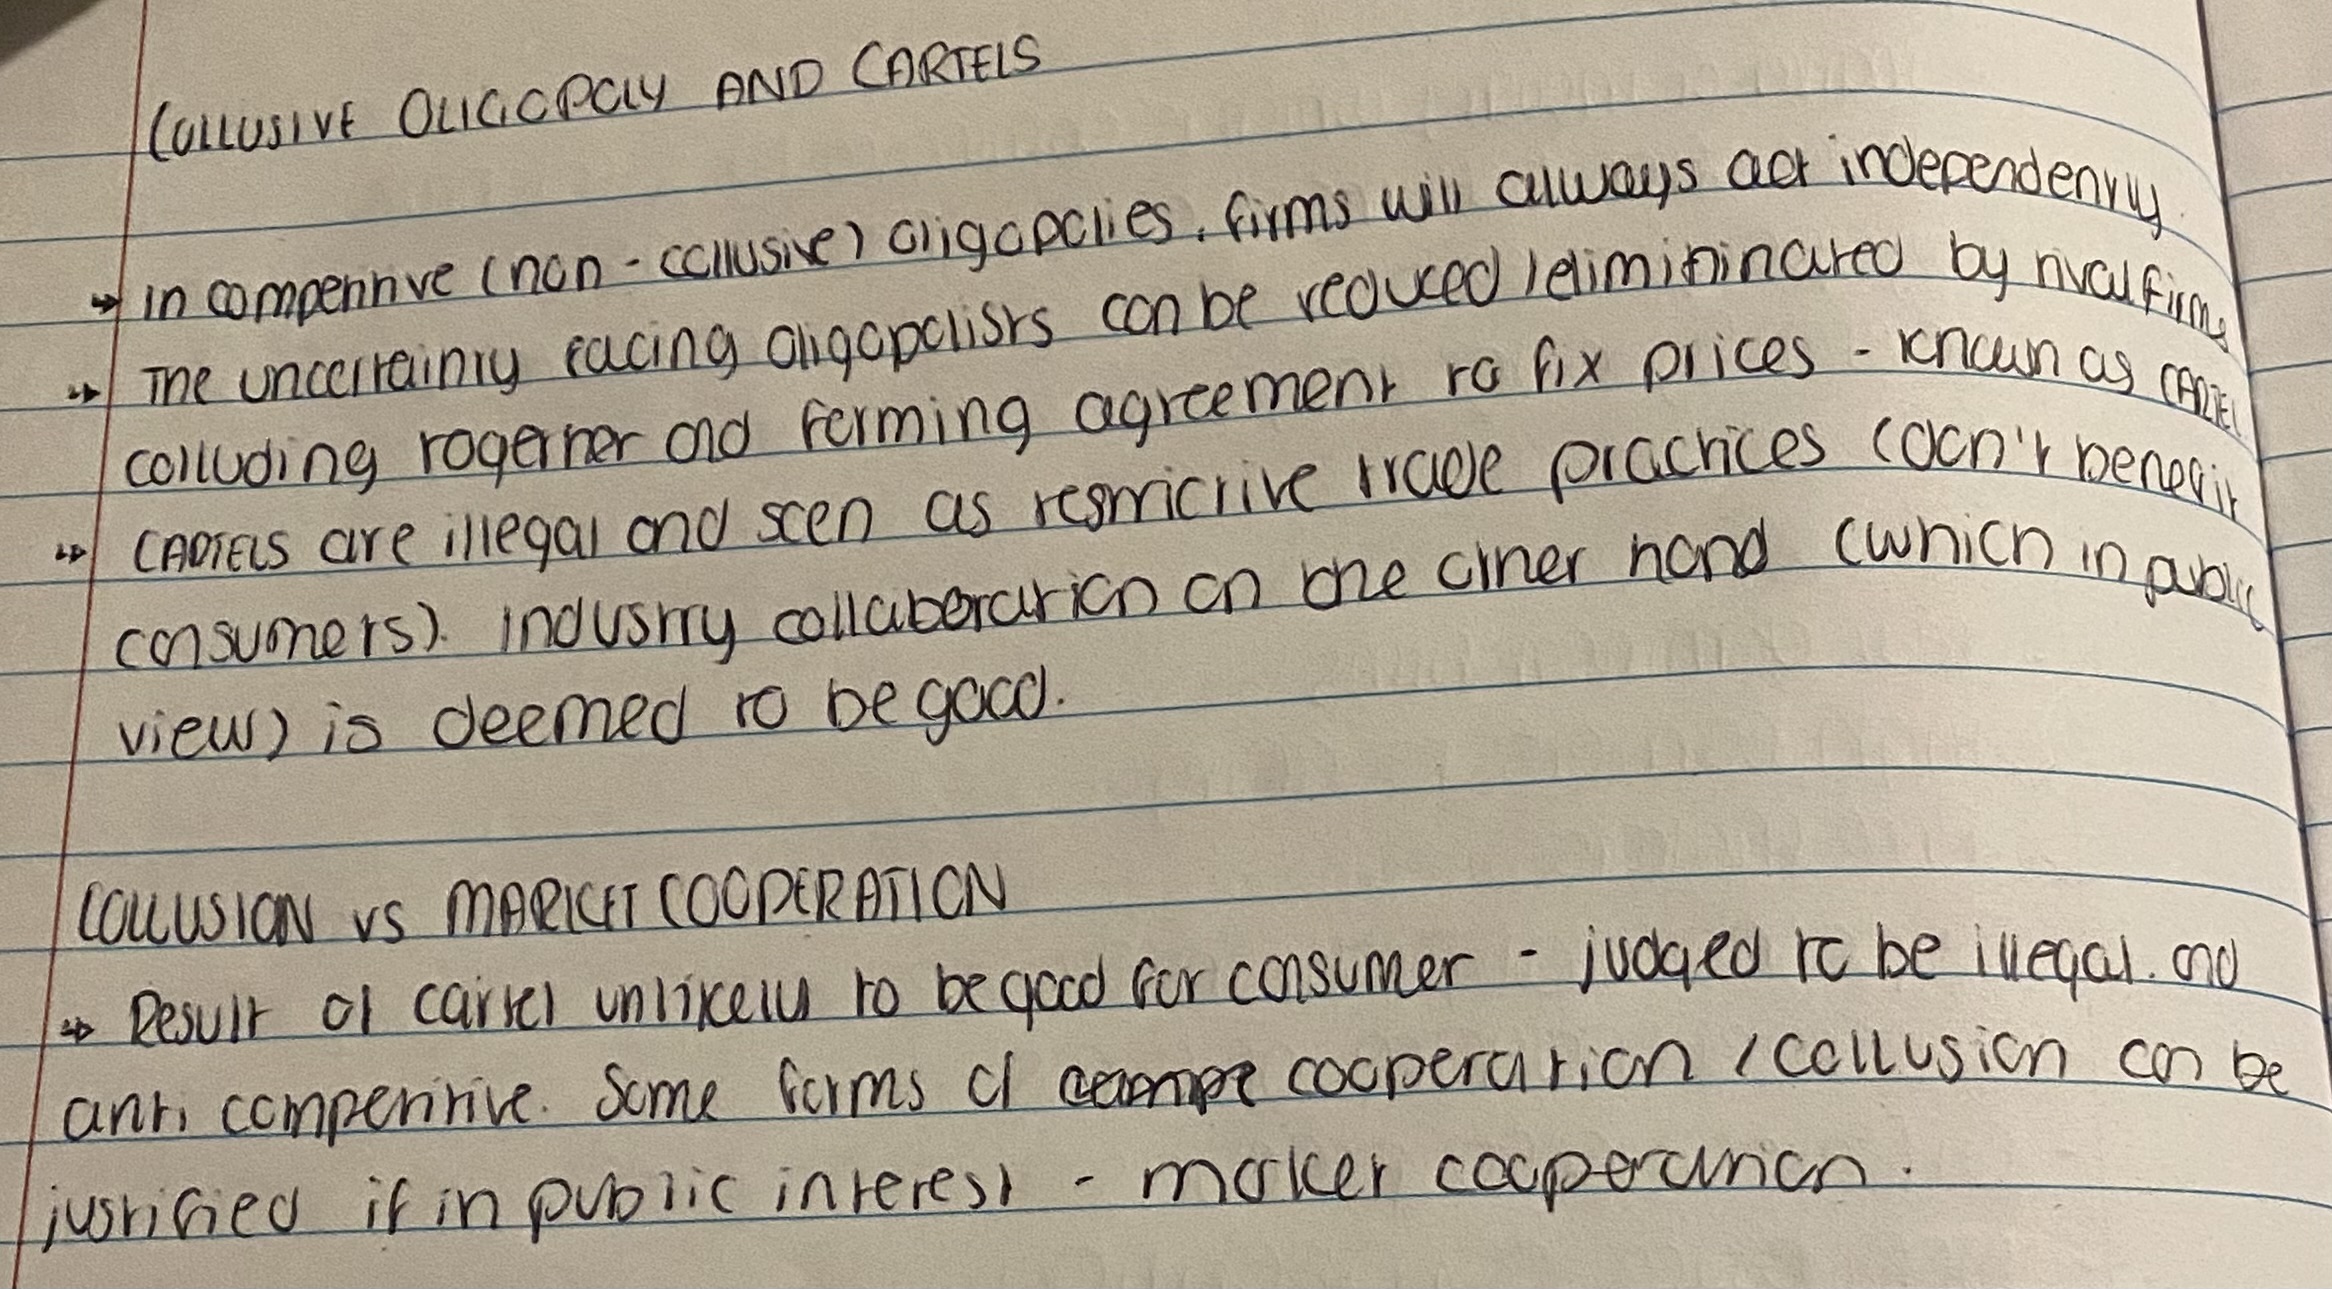 COLLUSIVE OLIGOPOLY AND CARTELS
→ in competitive (non-collusive) oligopolies, firms will always act independently.
→ The uncertainty facing oligopolists can be reduced / elimininated by rival firms
colluding together and forming agreement to fix prices - known as CARTEL
→ CARTELS are illegal and seen as restrictive trade practices (don't benefit
consumers). industry collaboration on the other hand (which in public
view) is deemed to be good.
COLLUSION vs MARKET COOPERATION
→ Result of cartel unlikely to be good for consumer - judged to be illegal and
anti competitive. Some forms of cooperation / collusion can be
justified if in public interest - market cooperation.